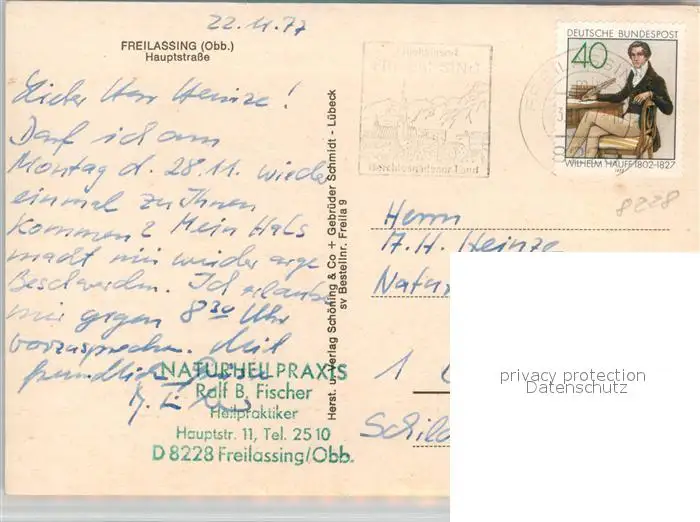 22.11.77
FREILASSING (Obb.)
Hauptstraße
Lieber Herr Heinze!
Darf ich am
Montag d. 28.11. wieder
einmal zu Ihnen
kommen? Mein Hals
macht mir wieder arge
Beschwerden. Ich erlaube
mir gegen 8 30 Uhr
vorzusprechen. Mit
freundlich
NATURHEILPRAXIS
Ralf B. Fischer
Heilpraktiker
Hauptstr. 11, Tel. 25 10
D 8228 Freilassing/Obb.
Herst. u. Verlag Schöning & Co + Gebrüder Schmidt - Lübeck
sv Bestellnr. Freila 9
DEUTSCHE BUNDESPOST
40
WILHELM HAUFF 1802-1827
1977
8228
Herrn
A. H. Heinze
Natur
1
Schild
privacy protection
Datenschutz